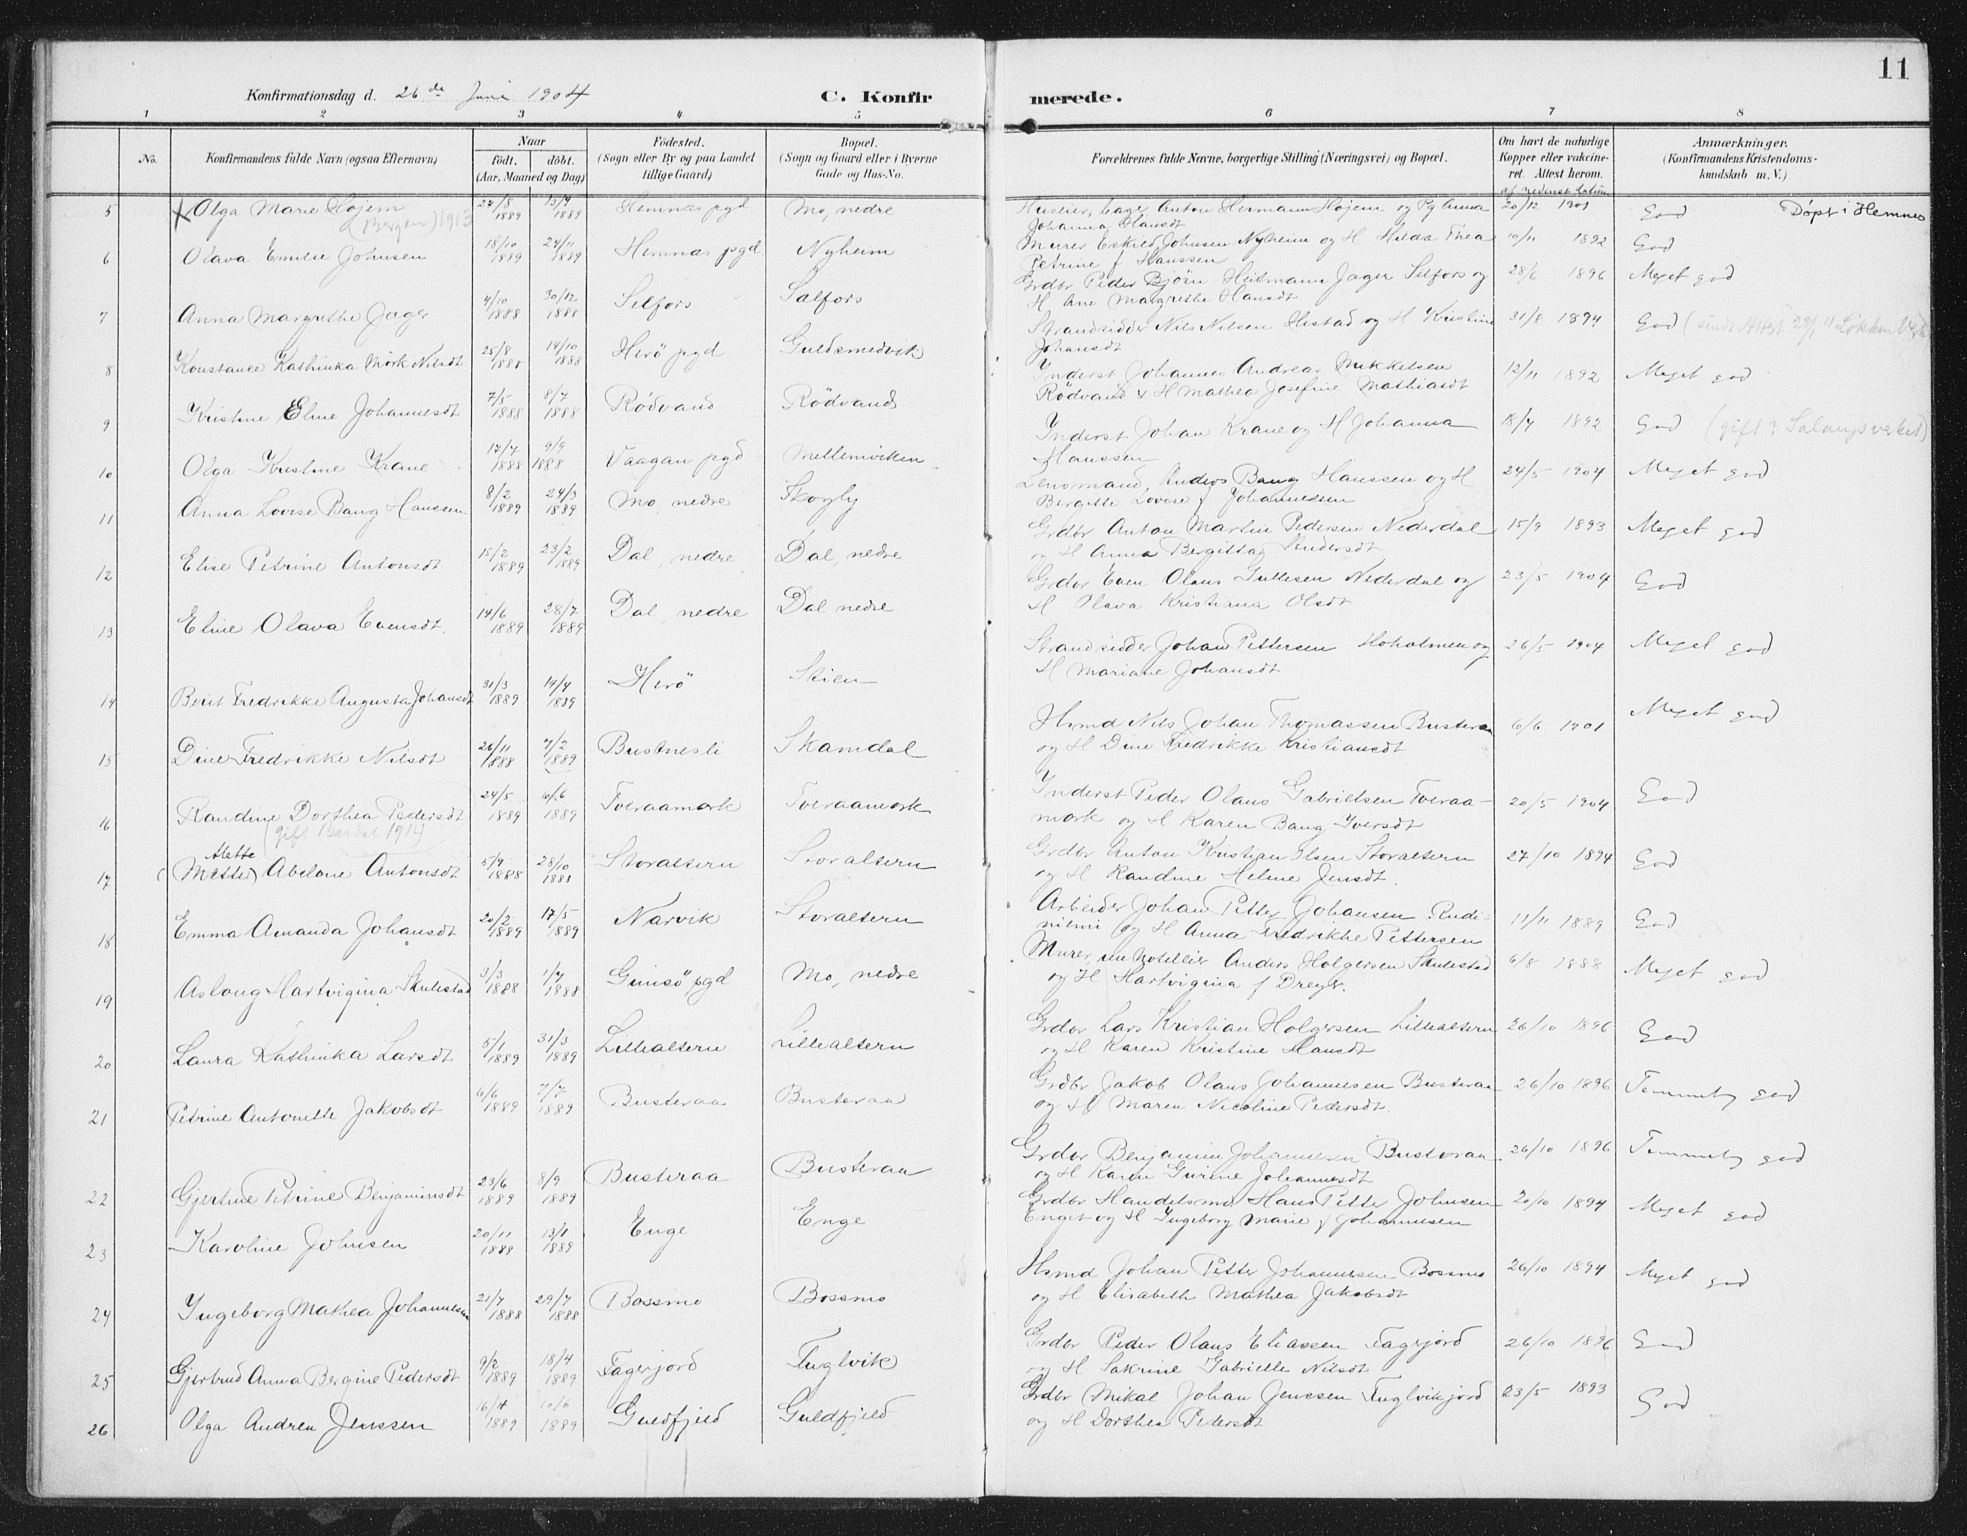 11
Konfirmationsdag d. 26de Juni 1904 C. Konfirmerede.
1 2 3 4 5 6 7 8
No. Konfirmandens fulde Navn (ogsaa Efternavn) Naar Födested. Bopæl. Forældrenes fulde Navne, borgerlige Stilling (Næringsvei) og Bopæl. Om havt de naturlige Anmærkninger.
født. döbt. (Sogn eller By og paa Landet (Sogn og Gaard eller i Byerne Kopper eller vakcine- (Konfirmandens Kristendoms-
(Aar, Maaned og Dag) tillige Gaard) Gade og Hus-No. ret. Attest herom. kundskab m. V.)
af nedenst. datum
5 Olga Marie Højem 24/8 1889 13/9 1889 Hemnæs pgd Mo, nedre Anton Hermann Højem og Pg Anna 20/12 1901 God Døpt i Hemnes
(Bergen) 1913 Johanna Hansdt
6 Olava Emilie Johnsen 18/10 1889 24/11 1889 Hemnæs pgd Nyheim Murer Eskild Johnsen Nyheim og H Hilda Thea 10/11 1892 God
Petrine f Hanssen
7 Anna Margrethe Jager 4/10 1888 30/12 1888 Selfors Salfors Grdbr Peder Bjørn Heitmann Jager Selfors og 28/6 1896 Meget god
H Ane Margrethe Hansdt
8 Konstance Kathinka Mörk Nilsdt 25/8 1888 14/10 1888 Herö pgd Guldsmedvik Strandsidder Nils Nilsen Hestad og H Kristine 31/8 1894 God
Johansdt
9 Kristine Eline Johannesdt 7/5 1888 8/7 1888 Rödvand Rödvand Inderst Johannes Andreas Mikkelsen 12/11 1892 Meget god
Rödvand & H Mathea Josefine Mathiasdt
10 Olga Kristine Krane 17/7 1888 9/9 1888 Vaagan pgd Mellemviken Inderst Johan Krane og H Johanna 18/7 1892 God (gift Salangsverket)
Hanssen
11 Anna Lovise Bang Hanssen 8/2 1889 24/3 1889 Mo, nedre Skogly Lensmand, Anders Bang Hanssen og H 24/5 1904 Meget god
Bergitte Lovise f. Johannessen
12 Elise Petrine Antonsdt 15/2 1889 23/2 1889 Dal, nedre Dal, nedre Grdbr Anton Martin Pedersen Nederdal 15/9 1893 Meget god
og H Anna Bergitta Andersdt
13 Eline Olava Evensdt. 14/6 1889 28/7 1889 Dal, nedre Dal nedre Grdbr Even Olaus Gullesen Nederdal og 23/5 1904 God
H Olava Kristiana Olsdt
14 Berit Fredrikke Augusta Johansdt 31/3 1889 14/4 1889 Herö Skien Strandsidder Johan Pettersen Hoholmen og 26/5 1904 Meget god
H Mariane Johansdt
15 Dine Fredrikke Nilsdt 26/11 1888 7/2 1889 Bustnesli Skamdal Hsmd Nils Johan Thomassen Busteraa 6/6 1901 Meget god
og H Dine Fredrikke Kristiansdt
16 Randine Dorthea Pedersdt 24/5 1889 10/6 1889 Tveraamork Tveraamork Inderst Peder Olaus Gabrielsen Tveraa- 20/5 1904 God
(gift 1914) mork og H Karen Bang Iversdt
Alette
17 (Mette) Abelone Antonsdt 5/9 1888 28/10 1888 Storalteren Storalteren Grdbr Anton Kristian Olsen Storalteren 27/10 1894 God
og H Randine Heline Jensdt.
18 Emma Amanda Johansdt 20/2 1889 17/5 1889 Narvik Storalteren Arbeider Johan Petter Johansen 11/11 1889 God
og H Anna Fredrikke Pettersen
19 Aslaug Hartvigina Skulestad 3/3 1888 1/7 1888 Gimsö pgd Mo, nedre Murer, nu hotellier Anders Holgersen Skulestad 6/8 1888 Meget god
og H Hartvigina f Dreyer.
20 Laura Kathinka Larsdt 5/1 1889 31/3 1889 Lillealteren Lillealteren Grdbr Lars Kristian Holgersen Lillealteren 26/10 1896 God
og H Karen Kristine Hansdt
21 Petrine Antonette Jakobsdt 6/6 1889 7/7 1889 Busteraa Busteraa Grdbr Jakob Olaus Johannesen Busteraa 26/10 1896 Temmelig god
og H Maren Nicoline Pedersdt.
22 Gjertine Petrine Benjaminsdt 23/6 1889 8/9 1889 Busteraa Busteraa Grdbr Benjamin Johannesen Busteraa 26/10 1896 Temmelig god
og H Karen Gurine Johannesdt
23 Karoline Johnsen 20/11 1888 13/1 1889 Enge Enge Grdbr Handelsmd Hans Petter Johnsen 20/10 1894 Meget god
Enget og H Ingeborg Marie f Johannesen
24 Ingeborg Mathea Johannesen 21/7 1888 29/7 1888 Bossmo Bossmo Hsmd Johan Petter Johannesen Bossmo 26/10 1894 Meget god
og H Elisabeth Mathea Jakobsdt
25 Gjertrud Anna Bergine Pedersdt 9/2 1889 18/4 1889 Fagerjord Fuglvik Grdbr Peder Olaus Eliassen Fagerjord 26/10 1896 God
og H Sakrine Gabrielle Nilsdt
26 Olga Andrea Jenssen 16/4 1889 10/6 1889 Guldfjeld Guldfjeld Grdbr Mikal Johan Jenssen Fuglvikjord 23/5 1893 God
og H Dorthea Pedersdt